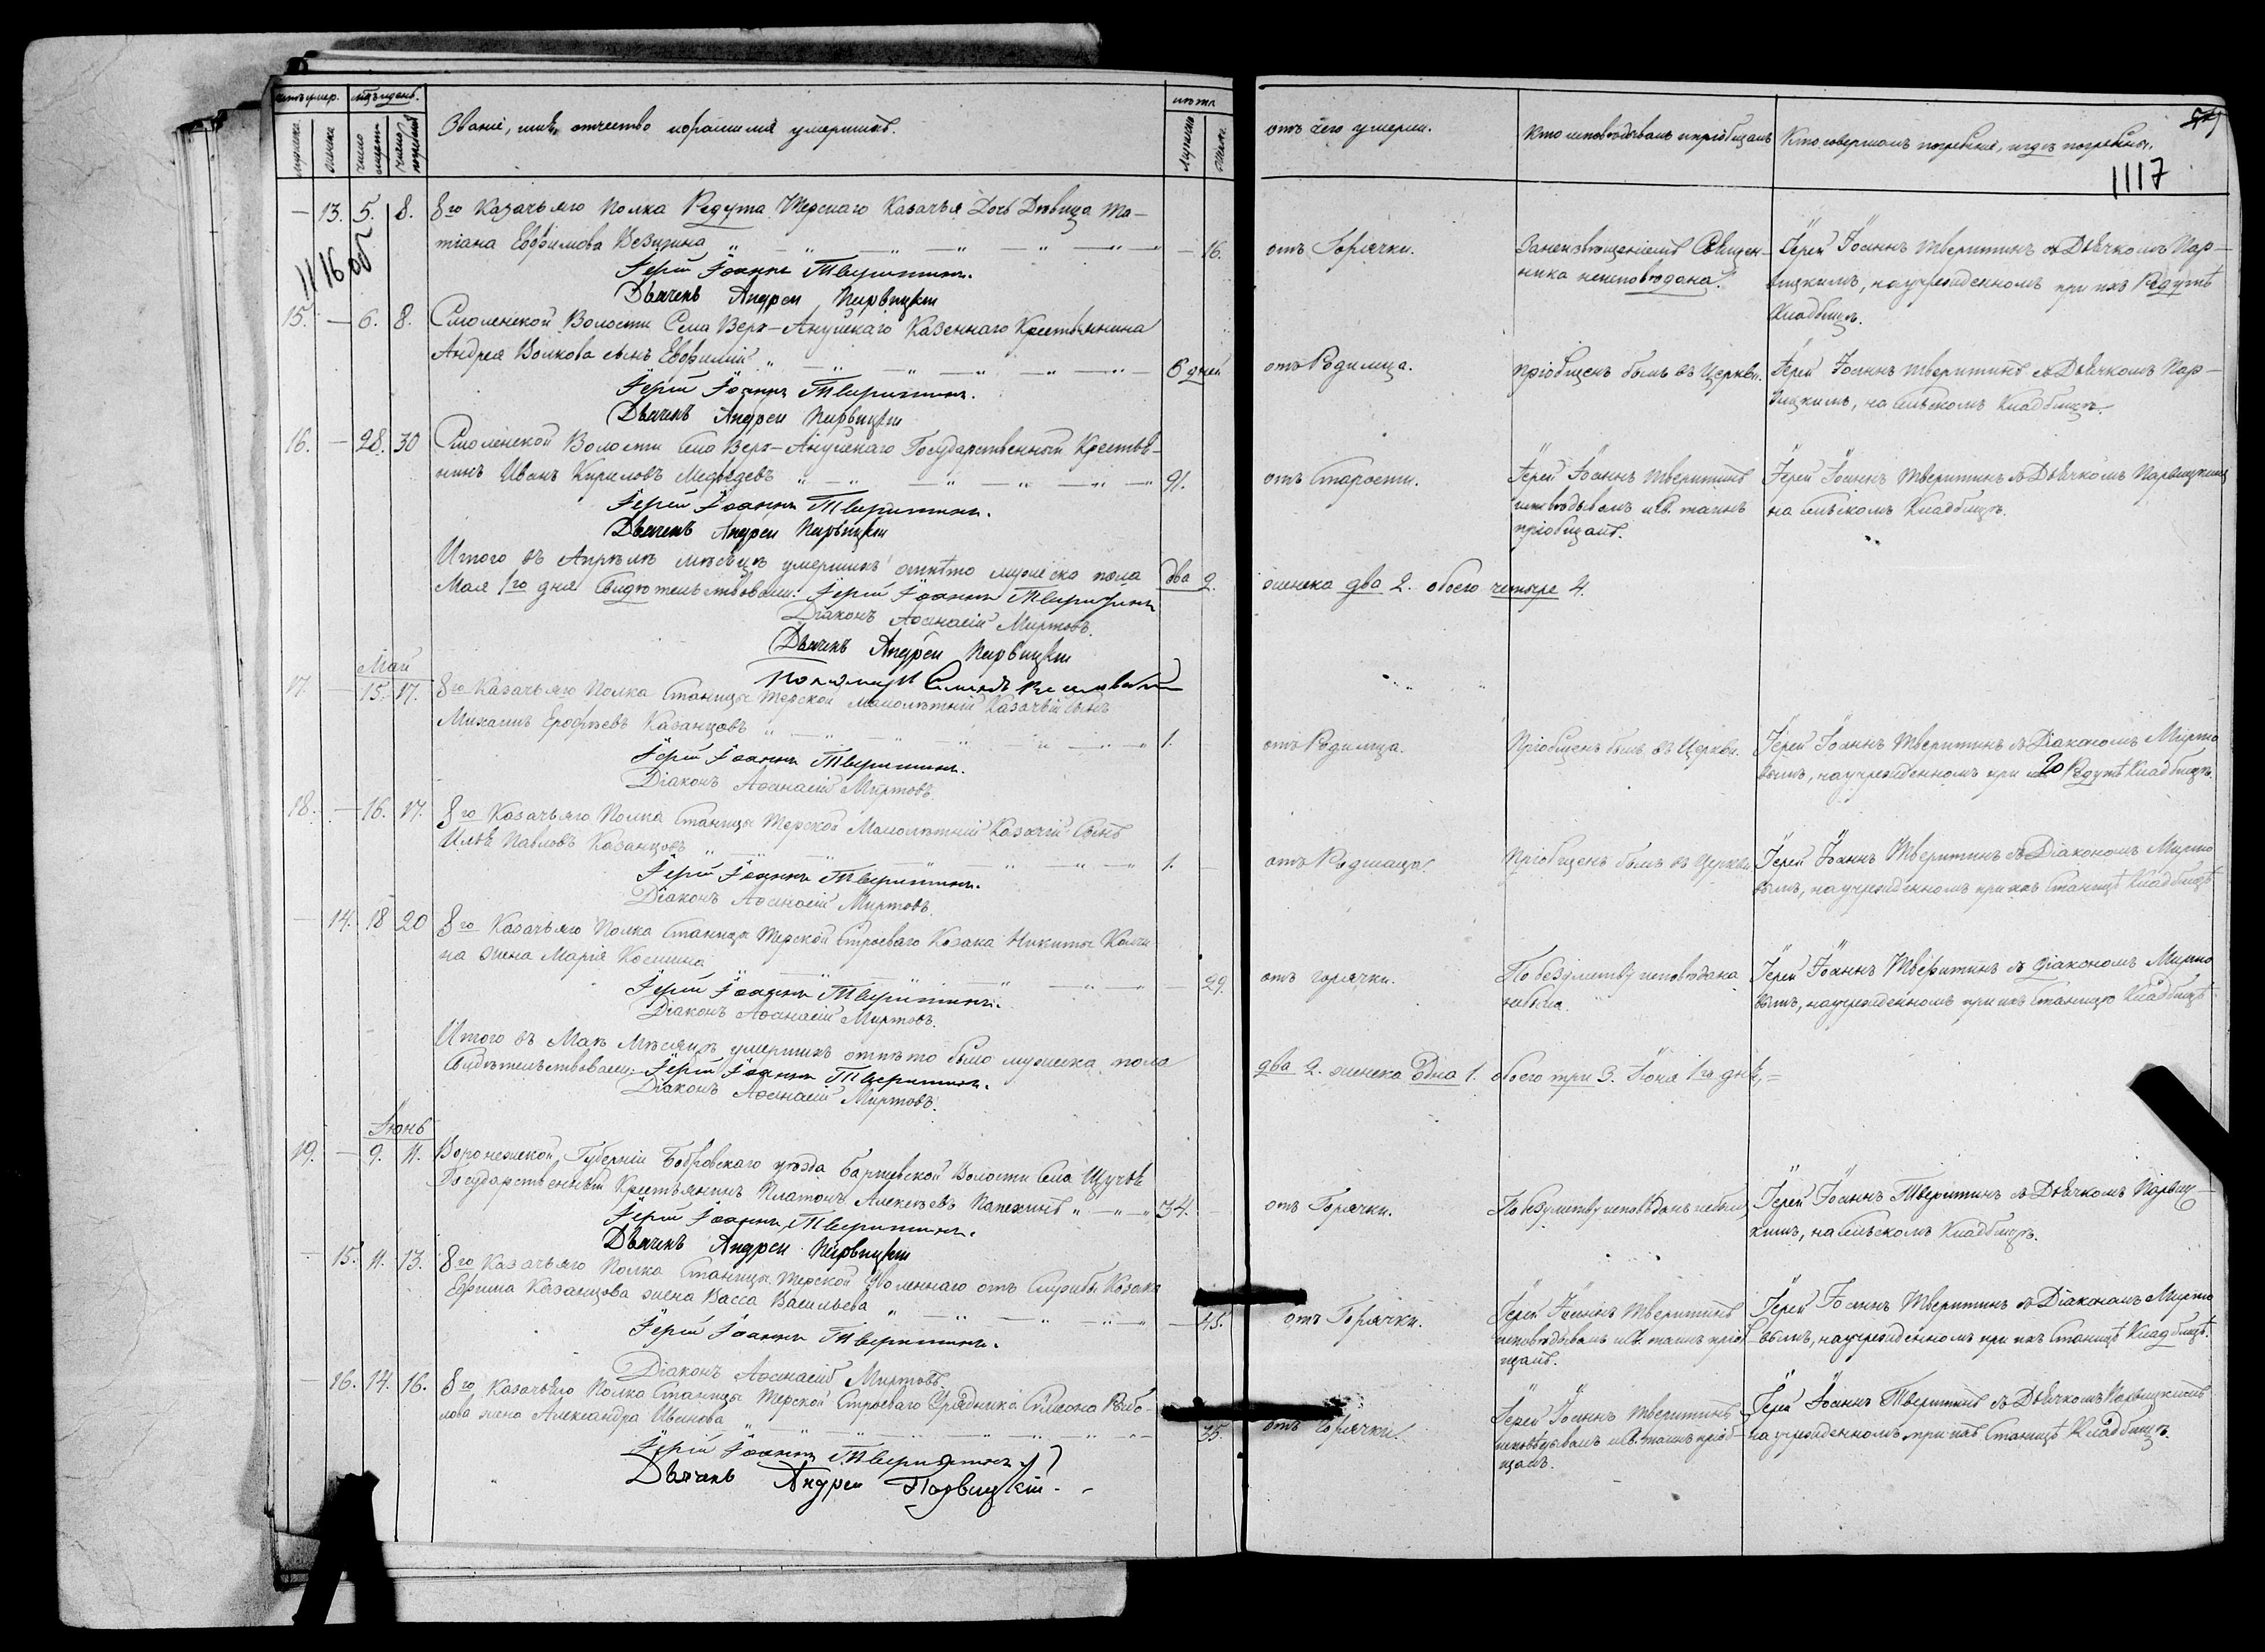 счетъ умер. мѣсяцъ и день.
Званіе, имя, отчество и фамилія умершихъ.
лѣта
мужеска
женска
число смерти
число погребенія
мужеска
женска
13. 5. 8. 8го Казачьяго Полка Редута Терскаго Казачья Дочь Дѣвица Та-
тіана Ефѳимова 16.
1116 об
Іерей Іоаннъ Тверитинъ.
Дьячекъ Андрей Парвицкій
15. 6. 8. Смоленской Волости Села Верх-Ануйскаго Казеннаго Крестьянина
Андрея Волкова сынъ Евфимій 6 дней
Іерей Іоаннъ Тверитинъ.
Дьячекъ Андрей Парвицкій
16. 28. 30 Смоленской Волости Села Верх-Ануйскаго Государственный Крестья-
нинъ Иванъ Кириловъ Медведевъ 91.
Іерей Іоаннъ Тверитинъ.
Дьячекъ Андрей Парвицкій
Итого въ Апрѣлѣ мѣсяцѣ умершихъ отпѣто мужеска пола два 2.
Мая 1го дня Свидѣтельствовали: Іерей Іоаннъ Тверитинъ
Діаконъ Аѳанасій Миртовъ.
Дьячекъ Андрей Парвицкій
Май
17. 15. 17. 8го Казачьяго Полка Станицы Терской Малолѣтній Казачій сынъ
Михаилъ Ерофѣевъ Казанцовъ 1.
Іерей Іоаннъ Тверитинъ.
Діаконъ Аѳанасій Миртовъ.
18. 16. 17. 8го Казачьяго Полка Станицы Терской Малолѣтній Казачій Сынъ
Илья Павловъ Казанцовъ 1.
Іерей Іоаннъ Тверитинъ.
Діаконъ Аѳанасій Миртовъ.
14. 18 20 8го Казачьяго Полка Станицы Терской Строеваго Казака Никиты
на жена Марія Козмина 29.
Іерей Іоаннъ Тверитинъ.
Діаконъ Аѳанасій Миртовъ.
Итого въ Маѣ Мѣсяцѣ умершихъ отпѣто было мужеска пола
Свидѣтельствовали: Іерей Іоаннъ Тверитинъ.
Діаконъ Аѳанасій Миртовъ.
Іюнь
19. 9. 11. Воронежской Губерніи Бобровскаго уѣзда Волости Села Щучья
Государственный Крестьянинъ Платонъ Алексѣевъ 34.
Іерей Іоаннъ Тверитинъ.
Дьячекъ Андрей Парвицкій
15. 11. 13. 8го Казачьяго Полка Станицы Терской Уволеннаго отъ Службы Казака
Ефима Казанцова жена Васса Васильева 45.
Іерей Іоаннъ Тверитинъ.
Діаконъ Аѳанасій Миртовъ.
16. 14. 16. 8го Казачьяго Полка Станицы Терской Строеваго Урядника Симеона
лова жена Александра Иванова 35.
Іерей Іоаннъ Тверитинъ
Дьячекъ Андрей Парвицкій.
отъ чего умерли.
Кто исповѣдывалъ и пріобщалъ
Кто совершалъ погребеніе, и гдѣ погребены.
1117
отъ Горячки.
За неизвѣщеніемъ Священ-
ника неисповѣдана.
Іерей Іоаннъ Тверитинъ съ Дьячкомъ Пар-
вицкимъ, на учрежденномъ при ихъ Редутѣ
Кладбищѣ.
отъ Родимца.
Пріобщенъ былъ въ Церкви.
Іерей Іоаннъ Тверитинъ съ Дьячкомъ Пар-
вицкимъ, на сельскомъ Кладбищѣ.
отъ Старости.
Іерей Іоаннъ Тверитинъ
исповѣдывалъ и Св. таинъ
пріобщалъ.
Іерей Іоаннъ Тверитинъ съ Дьячкомъ Парвицкимъ
на сельскомъ Кладбищѣ.
женска два 2. обоего четыре 4.
отъ Родимца.
Пріобщенъ былъ въ Церкви.
Іерей Іоаннъ Тверитинъ съ Діакономъ Мирто
вымъ, на учрежденномъ при Редутѣ Кладбищѣ.
отъ Родимца.
Пріобщенъ былъ въ Церкви
Іерей Іоаннъ Тверитинъ съ Діакономъ Мирто
вымъ, на учрежденномъ при ихъ Станицѣ Кладбищѣ
отъ горячки.
По безумству исповѣдана
небыла.
Іерей Іоаннъ Тверитинъ съ Діакономъ Мирто
вымъ, на учрежденномъ при ихъ Станицѣ Кладбищѣ
два 2. женска одна 1. обоего три 3. Іюня 1го дня,=
отъ Горячки.
По безумству исповѣданъ небылъ
Іерей Іоаннъ Тверитинъ съ Дьячкомъ Парвиц-
кимъ, на сельскомъ Кладбищѣ.
отъ Горячки.
Іерей Іоаннъ Тверитинъ
исповѣдывалъ и Св. таинъ пріоб
щалъ.
Іерей Іоаннъ Тверитинъ съ Діакономъ Мирто
вымъ, на учрежденномъ при ихъ Станицѣ Кладбищѣ.
отъ Горячки.
Іерей Іоаннъ Тверитинъ
исповѣдывалъ и Св. таинъ пріоб-
щалъ.
Іерей Іоаннъ Тверитинъ съ Дьячкомъ Парвицкимъ
на учрежденномъ при ихъ Станицѣ Кладбищѣ.